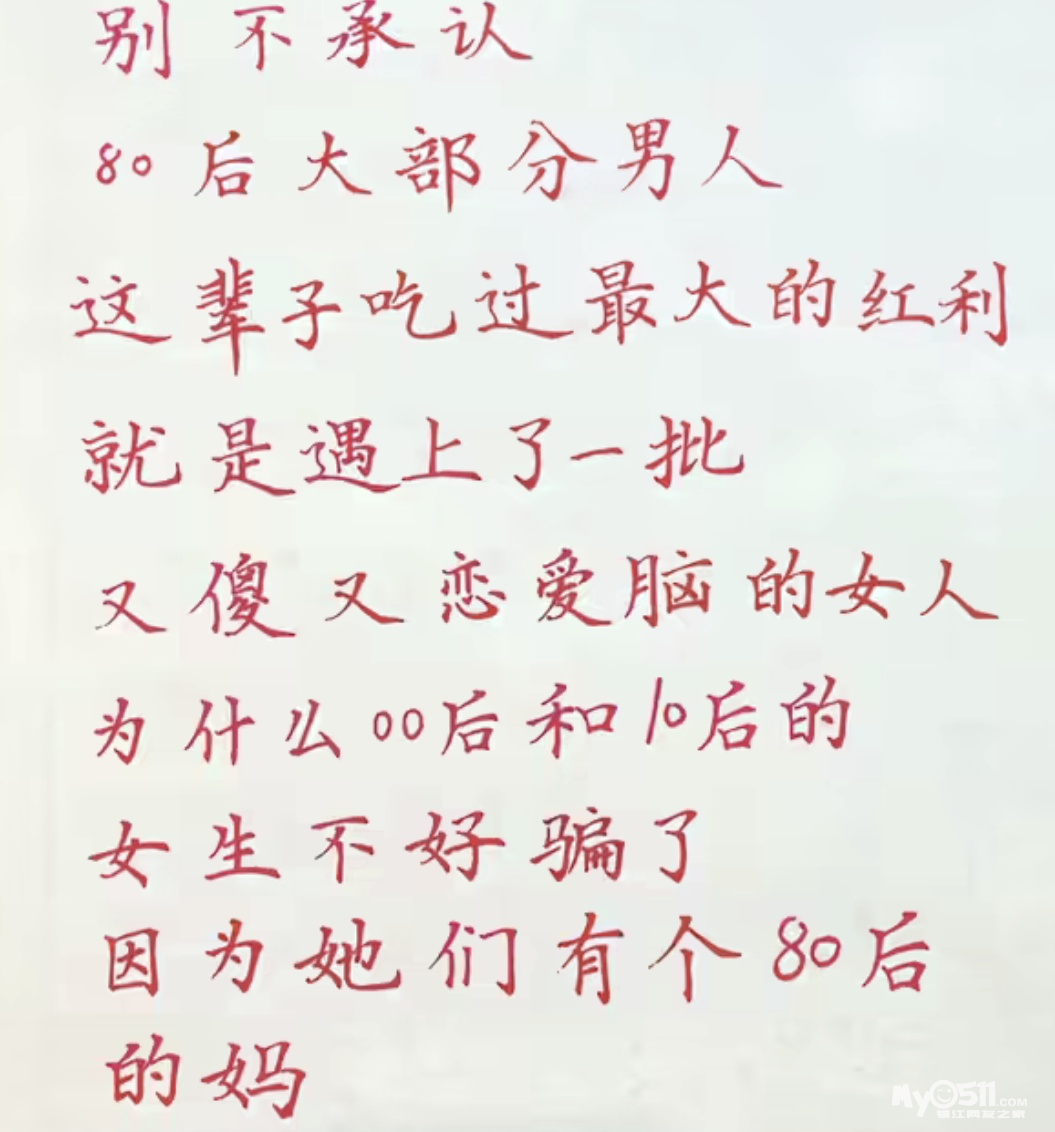 别不承认
80后大部分男人
这辈子吃过最大的红利
就是遇上了一批
又傻又恋爱脑的女人
为什么00后和10后的
女生不好骗了
因为她们有个80后
的妈
My0511.COM
镇江网友之家